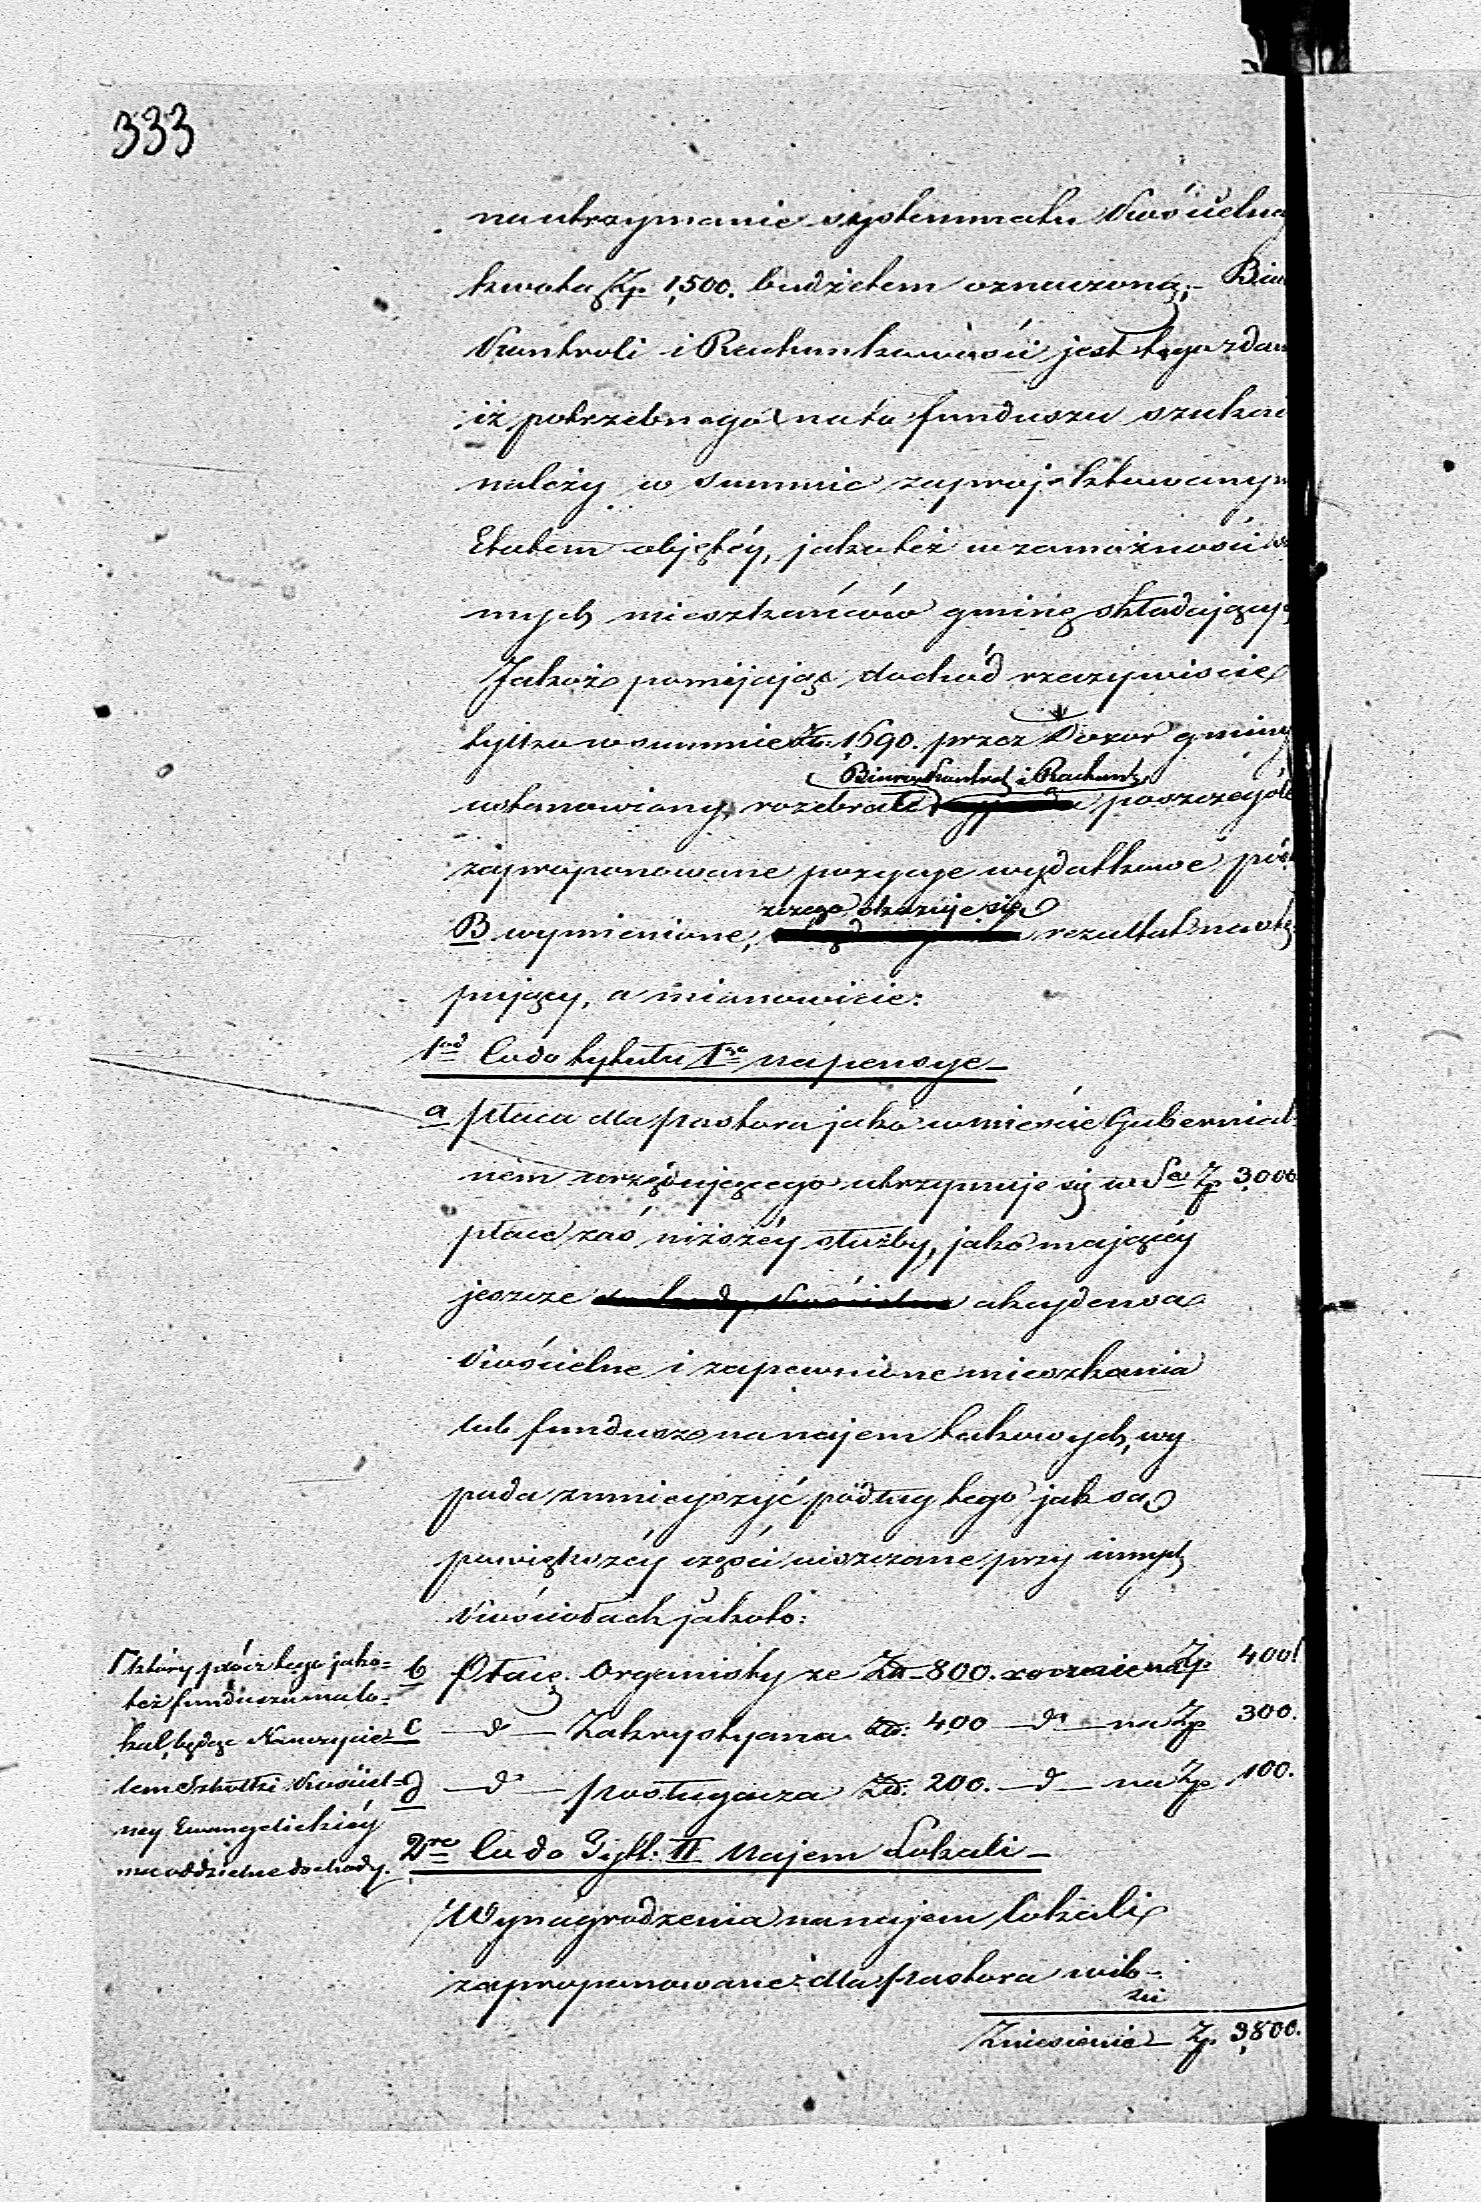 333
na utrzymanie systemmatu Kościelna
kwotą Zp. 1,500. budżetem oznaczoną; – Biu
Kontroli i Rachunkowości jest tego zdan
iż potrzebnego na to funduszu szukać
należy w summie zaprojektowanym
Etatem objętéy, jako też w zamożności
mych mieszkańców gminę składający
Jakoż pomijając dochód rzeczywiście
tylko w summie Zł. 1690. przez Dozor gminy
Biuro Kontrol i Rachunk
ustanowiony, rozebrało poszczegól
zaproponowane pozycye wydatkowe pod
z czego okazuje się
B wymienione, rezultat nastę-
pujący, a mianowicie:
1od Co do tytułu Igo na pensye –
a płaca dla Pastora jako w mieście Gubernial-
nem urzędującego utrzymuje się w Sie Zp 3,000
płace zaś niższéy służby, jako mającéy
jeszcze akcydensa
Kościelne i zapewnione mieszkania
lub fundusz na najem takowych, wy
pada zmnieyszyć podług tego jak są
powiększéy części uiszczane przy innych
Kościołach jakoto:
Γ który prócz tego jako-
też funduszu na lo-
kal, będąc Nauczycie-
lem Szkółki Kościel-
ney Ewangelickiéy
ma oddzielne dochody.
b Płacę Organisty ze Zł. 800. rocznie na Zp. 400Γ
c – do – Zakrystyana Zł. 400 – do – na Zp 300.
d – do – posługacza Zł. 200. – do – na Zp 100.
2re Co do Tytł. II Najem Lokali –
Wynagrodzenia na najem lokali
zaproponowane dla Pastora wilo-
ści
Zniesienie – Zp. 3,800.